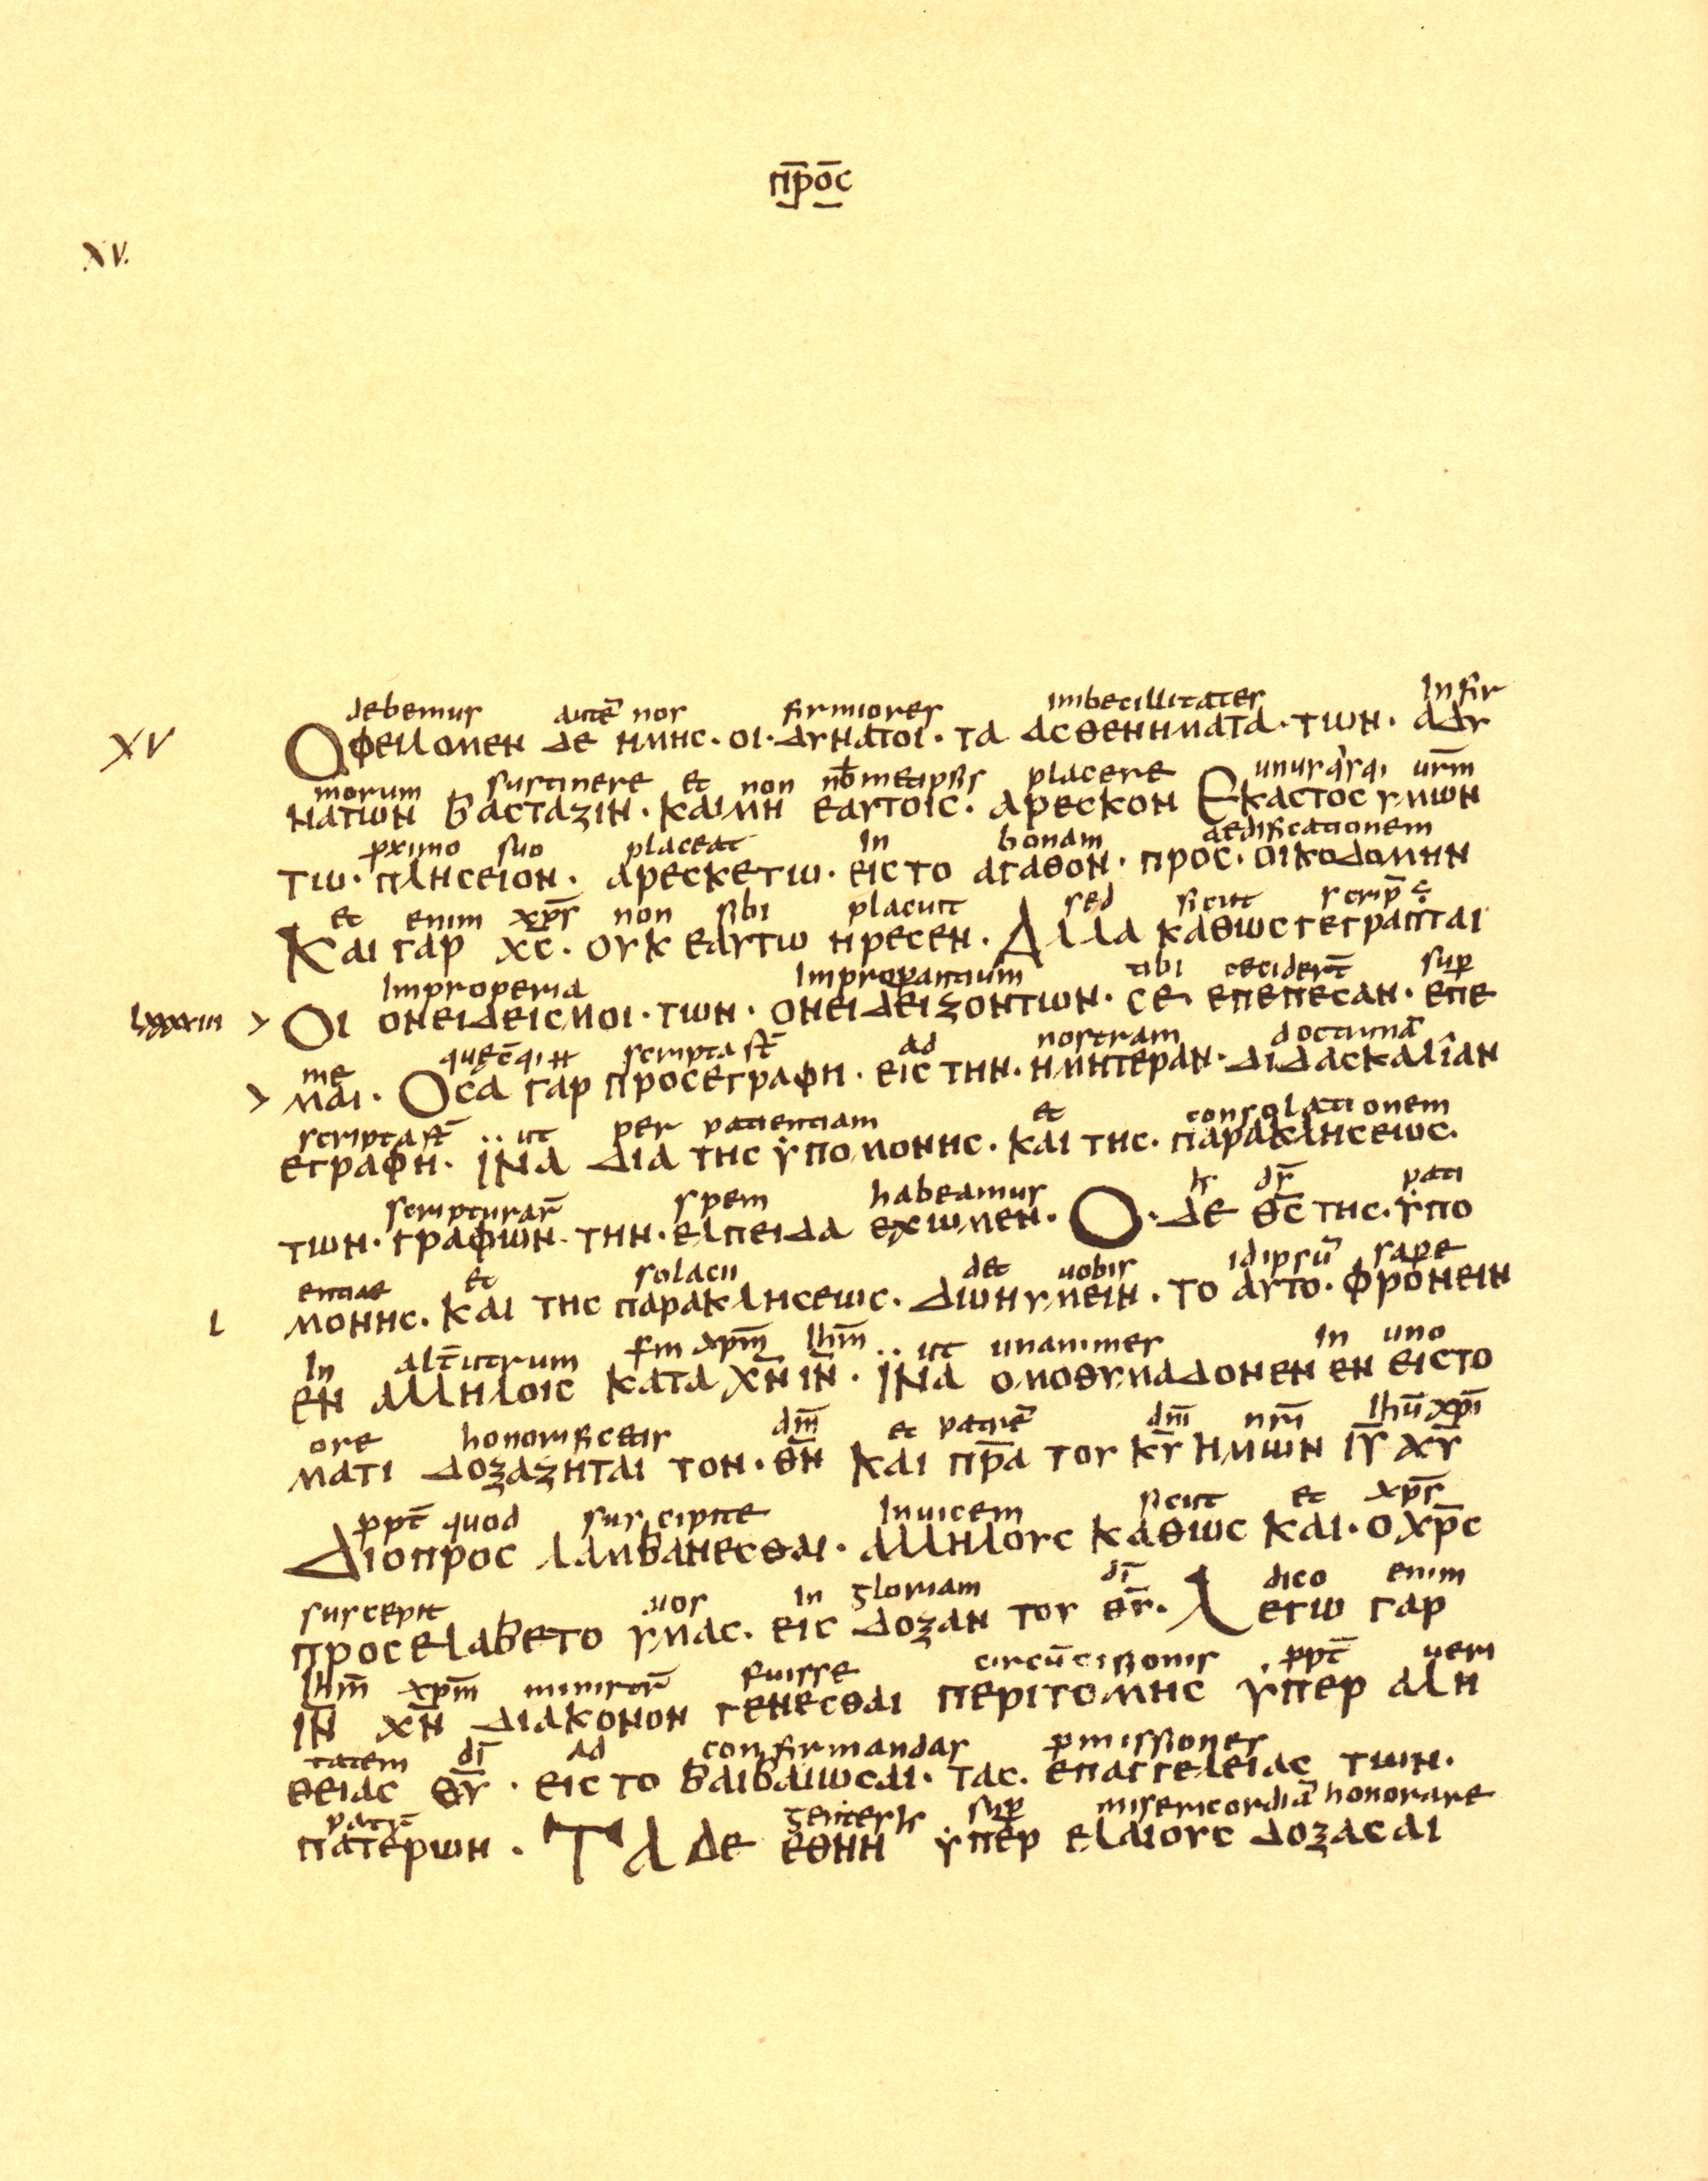 π̅ρ̅ο̅ς
XV.
debemus autē nos firmiores imbecillitates Infir
XV
Οφειλομεν δε ημης· οι· δυνατοι· τα ασθενηματα· των· αδυ
morum sustinere et non nobmetipsis placere unusq'sq; urm̅
νατων βαςταζιν· και μη εαυτοις· αρεςκον Εκαςτος υμων
pximo suo placeat In bonam aedificationem
τω· πληςειον· αρεςκετω· εις το αγαθον· προς· οικοδομην
et enim xp̅s non sibi placuit sed sicut scrip̅
Και γαρ χ̅ς· ουκ εαυτω ηρεςεν· Αλλα καθως γεγραπται
Improperia Improperantium tibi cecider̅t sup
lxxxxiii > Οι ονειδειςμοι· των· ονειδειζοντων· ςε επεπεςαν· επε
me scripta s̅t ad nostram doctrinā
> μαι· Οςα γαρ προςεγραφη· εις την· ημητεραν· διδαςκαλιαν
scripta s̅t ut per patientiam et consolationem
εγραφη· ινα δια της υπομονης· και της· παρακληςεως·
scripturar̅ spem habeamus d̅s pati
των· γραφων· την· ελπειδα εχωμεν· Ο· δε θ̅ς της· υπο
entiae et solacii det uobis idipsū sapere
l μονης· και της παρακληςεως· δωη υμειν· το αυτο· φρονειν
In alt̅utrum xp̅m Ih̅m ut unanimes In uno
εν αλληλοις κατα χ̅ν ι̅ν· ινα ομοθυμαδον εν εν ειςτο
ore honorificetis d̅m et patrē dn̅i nr̅i Ihū xp̅i
ματι δοξαζηται τον· θ̅ν και π̅ρ̅α του κ̅υ ημων ι̅υ χ̅υ
ppt̅ quod suscipite Inuicem sicut et xp̅s
Διοπρος λαμβανεςθαι· αλληλους καθως και· ο χ̅ρ̅ς
suscepit uos in gloriam d̅i dico enim
προςελαβετο υμας· εις δοξαν του θ̅υ· Λεγω γαρ
Ih̅m xp̅m ministr̅ fuisse circūcisionis ppt̅ ueri
ι̅ν χ̅ν διακονον γενεςθαι περιτομης υπερ αλη
tatem d̅i ad confirmandas pmissiones
θειας θ̅υ· εις το βαιβαιωςαι· τας· επαγγελειας των·
patr̅ gentes sup misericordiā honorare
πατερων· Τα δε εθνη υπερ ελαιους δοξαςαι